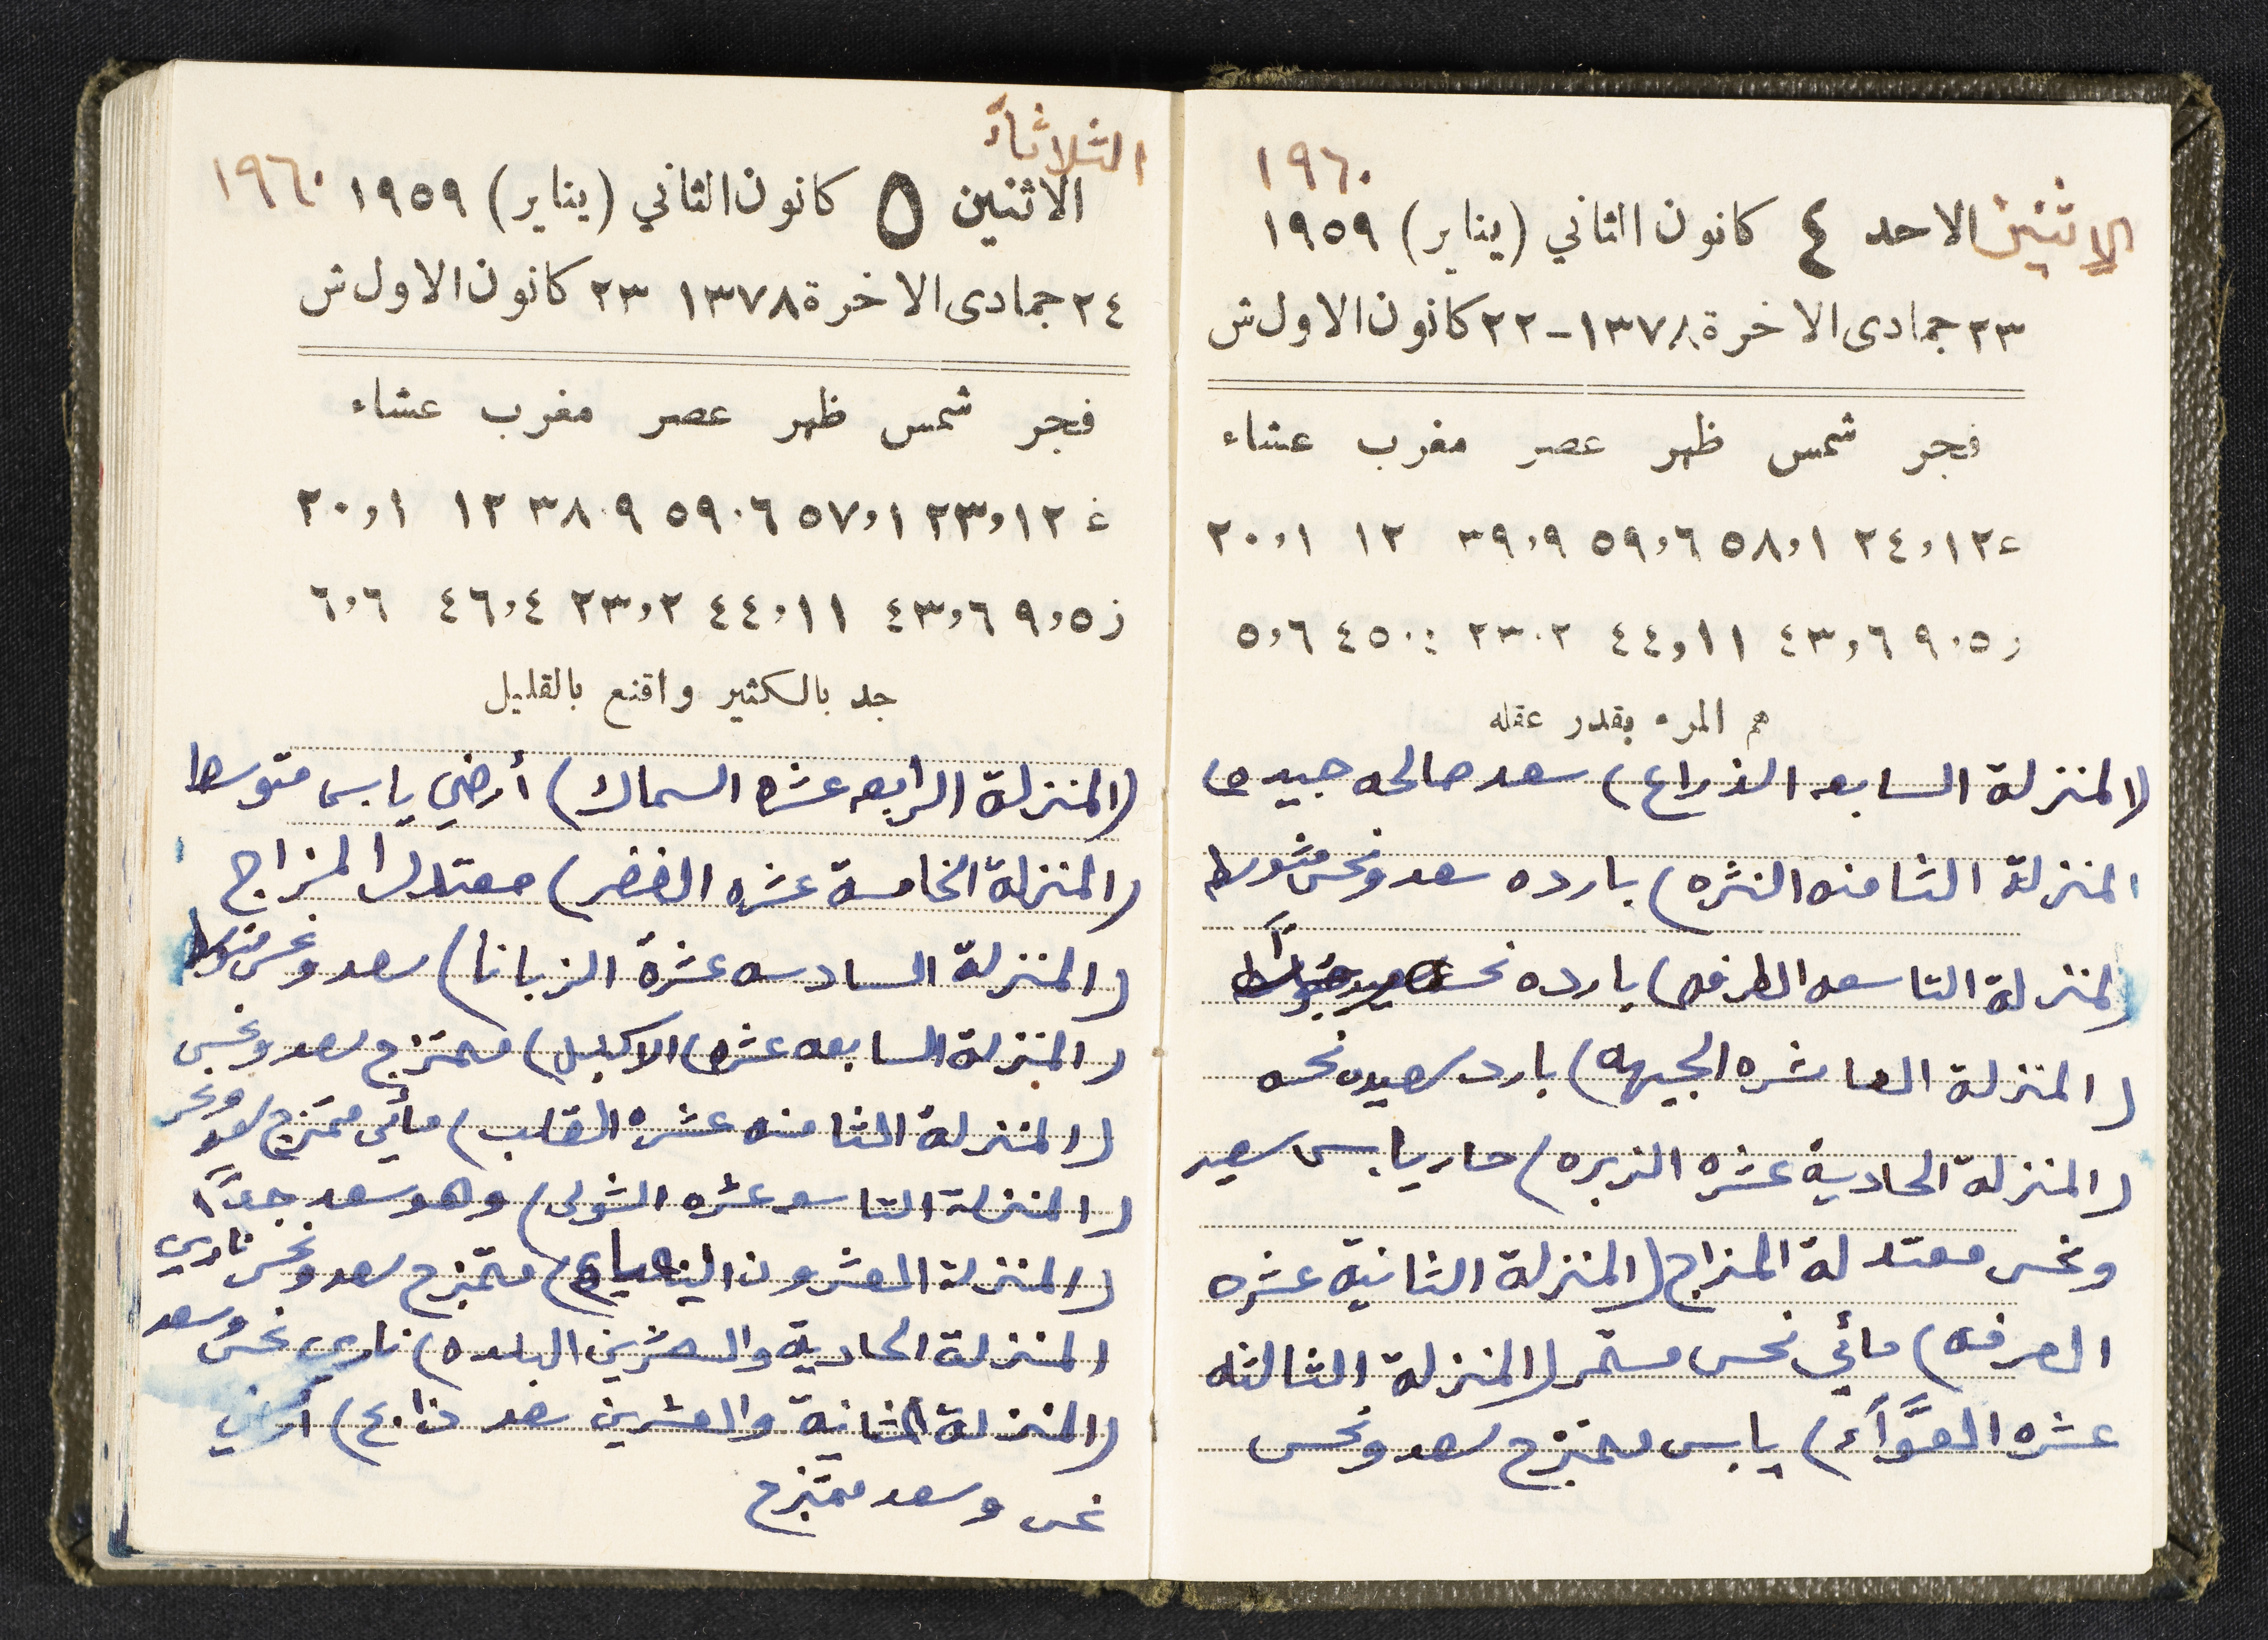 ١٩٦٠
الاثنين الاحد ٤ كانون الثاني (يناير) ١٩٥٩
٢٣ جمادى الاخرة ١٣٧٨ - ٢٢ كانون الاول ش
فجر شمس ظهر عصر مغرب عشاء
ع ١٢،٢٤ ١،٥٨ ٦،٥٩ ٩،٣٩ ١٢ ١،٢٠
ز ٥،٩ ٦،٤٣ ١١،٤٤ ٢،٢٣ ٤،٤٥ ٦،٥
هم المرء بقدر عقله
(المنزلة السابعه الذراع) سعد صالحه جيده
المنزلة الثامنه النثره) بارده سعد ونحس متوسط
المنزلة التاسعه الطرفه) بارده نحسه
(المنزلة العاشره الجبهه) بارد سعيده نحسه
(المنزلة الحادية عشره الزبره) حار يابس سعيد
ونحس معتدلة المزاج (المنزلة الثانية عشره
الصرفه) مائي نحس مستمر (المنزلة الثالثه
عشره العوَّآء) يابس ممتزج سعد ونحس
الثلاثاء
الاثنين ٥ كانون الثاني (يناير) ١٩٥٩ ١٩٦٠
٢٤ جمادى الاخرة ١٣٧٨ ٢٣ كانون الاول ش
فجر شمس ظهر عصر مغرب عشاء
ع ١٢،٢٣ ١،٥٧ ٦،٥٩ ٩،٣٨ ١٢ ١،٢٠
ز ٥،٩ ٦،٤٣ ١١،٤٤ ٢،٢٣ ٤،٤٦ ٦،٦
جد بالكثير واقنع بالقليل
(المنزلة الرابعه عشره السماك) أرضي يابس متوسط
(المنزلة الخامسة عشره الغفر) معتدل المزاج
(المنزلة السادسه عشرة الزبانا) سعد ونحس متوسط
(المنزلة السابعه عشره) الاكليل) ممتزج سعد ونحس
(المنزلة الثامنه عشره القلب) مائي ممتزج سعد ونحس
(المنزلة التاسعه عشره الشولى) وهو سعد جدًا
(المنزلة العشرون النعايم) ممتزج سعد ونحس ناري
المنزلة الحادية والعشرين البلده) ناري نحس وسعد
(المنزلة الثانية والعشرين سعد ذابح) أرضي
نحس وسعد ممتزج